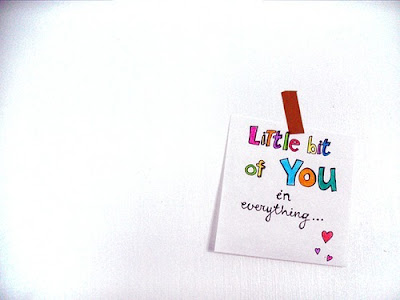 Little bit
of YOU
in
everything...